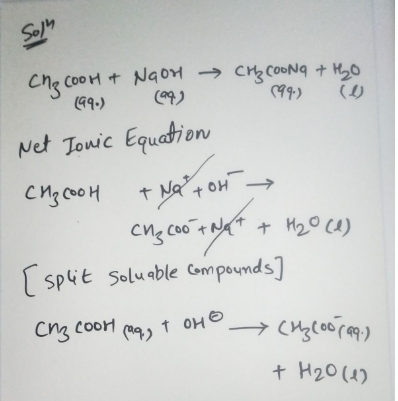 Solⁿ
CH₃COOH + NaOH → CH₃COONa + H₂O
(aq.) (aq.) (aq.) (l)
Net Ionic Equation
CH₃COOH + Na⁺ + OH⁻ →
CH₃COO⁻ + Na⁺ + H₂O (l)
[split soluable compounds]
CH₃COOH (aq.) + OH⊖ → CH₃COO⁻(aq.)
+ H₂O (l)